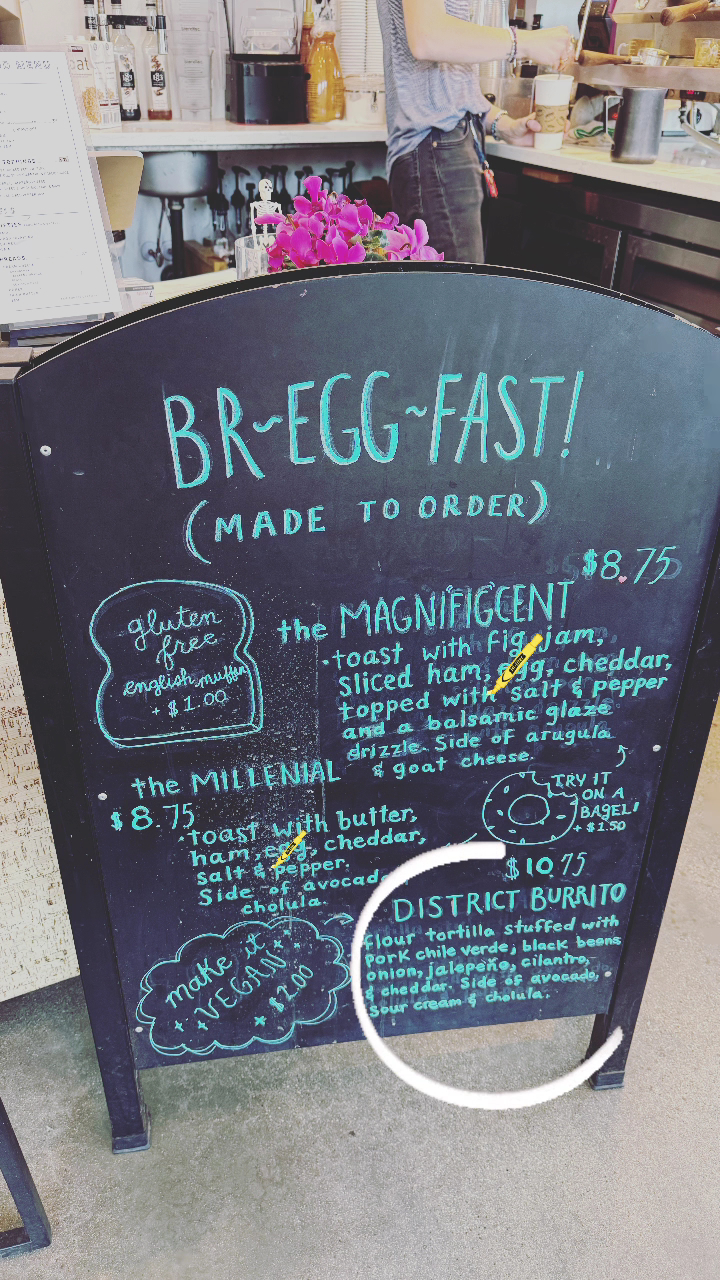 BR~EGG~FAST!
(MADE TO ORDER)
$8.75
gluten
free
english muffin
+ $1.00
the MAGNIFIGCENT
·toast with fig jam,
sliced ham, egg, cheddar,
topped with salt & pepper
and a balsamic glaze
drizzle. Side of arugula
& goat cheese.
the MILLENIAL
$8.75
·toast with butter,
ham, egg, cheddar,
salt & pepper.
Side of avocado
cholula.
TRY IT
ON A
BAGEL!
+ $1.50
make it
VEGAN
$2.00
$10.75
DISTRICT BURRITO
flour tortilla stuffed with
pork chile verde, black beans
onion, jalepeño, cilantro,
& cheddar. Side of avocado,
sour cream & cholula.